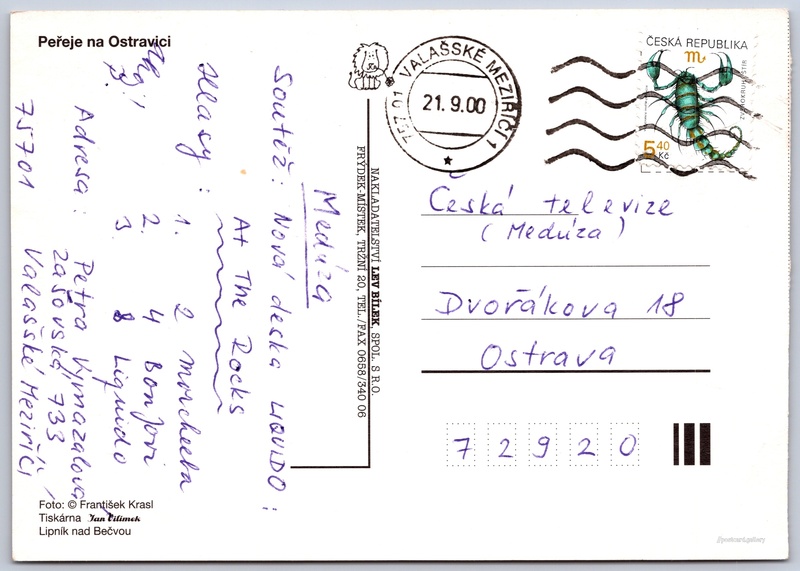 Peřeje na Ostravici
VALAŠSKÉ MEZIŘÍČÍ 1
757 01
21.9.00
ČESKÁ REPUBLIKA
ZVÍŘETNÍK
5,40
Kč
Medúza
Soutěž: Nová deska LIQUIDO:
At The Rocks
Hlasy: 1. 2 morcheeba
2. 4 Bon Jovi
3. 8 Liquido
Adresa: Petra Vymazalová
Zašovská 733
75701 Valašské Meziříčí
NAKLADATELSTVÍ LEV BÍLEK, SPOL. S R.O.
FRÝDEK-MÍSTEK, TRŽNÍ 20, TEL./FAX 0658/340 06
Česká televize
(Medúza)
Dvořákova 18
Ostrava
72920
Foto: © František Krasl
Tiskárna Jan Cilimek
Lipník nad Bečvou
//postcard.gallery